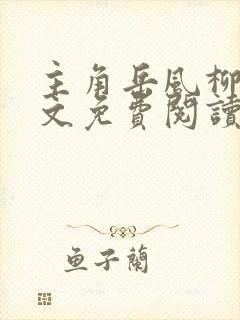 主角岳風柳
文免費閱讀
魚子蘭